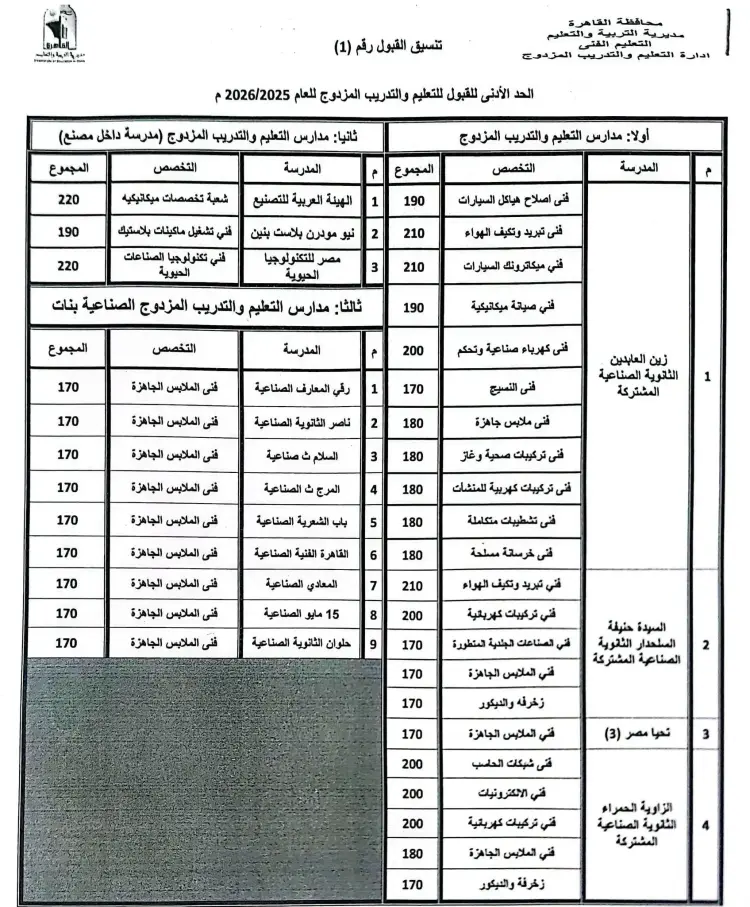 محافظة القاهرة
مديرية التربية والتعليم
التعليم الفنى
ادارة التعليم والتدريب المزدوج
القاهرة
مديرية التربية والتعليم
تنسيق القبول رقم (1)
الحد الأدنى للقبول للتعليم والتدريب المزدوج للعام 2026/2025 م
أولا: مدارس التعليم والتدريب المزدوج
م المدرسة التخصص المجموع
1 زين العابدين الثانوية الصناعية المشتركة
فنى اصلاح هياكل السيارات 190
فني تبريد وتكيف الهواء 210
فني ميكاترونك السيارات 210
فني صيانة ميكانيكية 190
فنى كهرباء صناعية وتحكم 200
فنى النسيج 170
فنى ملابس جاهزة 180
فنى تركيبات صحية وغاز 180
فنى تركيبات كهربية للمنشأت 180
فنى تشطيبات متكاملة 180
فنى خرسانة مسلحة 180
2 السيدة حنيفة السلحدار الثانوية الصناعية المشتركة
فني تبريد وتكيف الهواء 210
فني تركيبات كهربائية 200
فني الصناعات الجلدية المتطورة 170
فني الملابس الجاهزة 170
زخرفه والديكور 170
3 تحيا مصر (3) فني الملابس الجاهزة 170
4 الزاوية الحمراء الثانوية الصناعية المشتركة
فنى شبكات الحاسب 200
فني الالكترونيات 200
فني تركيبات كهربائية 200
فني الملابس الجاهزة 180
زخرفة والديكور 170
ثانيا: مدارس التعليم والتدريب المزدوج (مدرسة داخل مصنع)
م المدرسة التخصص المجموع
1 الهيئة العربية للتصنيع شعبة تخصصات ميكانيكيه 220
2 نيو مودرن بلاست بنين فني تشغيل ماكينات بلاستيك 190
3 مصر للتكنولوجيا الحيوية فني تكنولوجيا الصناعات الحيوية 220
ثالثا: مدارس التعليم والتدريب المزدوج الصناعية بنات
م المدرسة التخصص المجموع
1 رقي المعارف الصناعية فنى الملابس الجاهزة 170
2 ناصر الثانوية الصناعية فنى الملابس الجاهزة 170
3 السلام ث صناعية فنى الملابس الجاهزة 170
4 المرج ث الصناعية فنى الملابس الجاهزة 170
5 باب الشعرية الصناعية فنى الملابس الجاهزة 170
6 القاهرة الفنية الصناعية فنى الملابس الجاهزة 170
7 المعادي الصناعية فنى الملابس الجاهزة 170
8 15 مايو الصناعية فنى الملابس الجاهزة 170
9 حلوان الثانوية الصناعية فنى الملابس الجاهزة 170